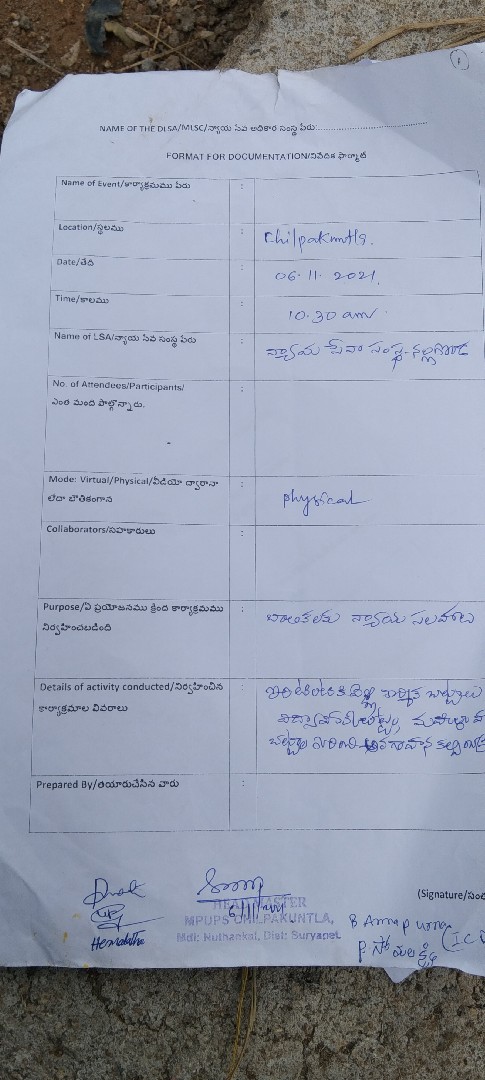 1
NAME OF THE DLSA/MLSC/న్యాయ సేవ అధికార సంస్థ పేరు:
FORMAT FOR DOCUMENTATION/నివేదిక ఫార్మాట్
Name of Event/కార్యాక్రమము పేరు :
Location/స్థలము : Chilpakuntla.
Date/తేది : 06.11.2021.
Time/కాలము : 10.30 am.
Name of LSA/న్యాయ సేవ సంస్థ పేరు : న్యాయ సేవా సంస్థ-నల్లగొండ
No. of Attendees/Participants/ :
ఎంత మంది పాల్గొన్నారు.
Mode: Virtual/Physical/వీడియో ద్వారానా : physical
లేదా బౌతికంగాన
Collaborators/సహకారులు :
Purpose/ఏ ప్రయోజనము క్రింద కార్యాక్రమము : న్యాయ సలహాలు
నిర్వహించబడింది
Details of activity conducted/నిర్వహించిన :
కార్యాక్రమాల వివరాలు
చట్టాల గురించి అవగాహన
Prepared By/తయారుచేసిన వారు :
(Signature/సంత
HEAD MASTER
6/11/2021
MPUPS CHILPAKUNTLA,
Mdl: Nuthankal, Dist: Suryapet.
Hemalatha
B Annapurna
(ICD